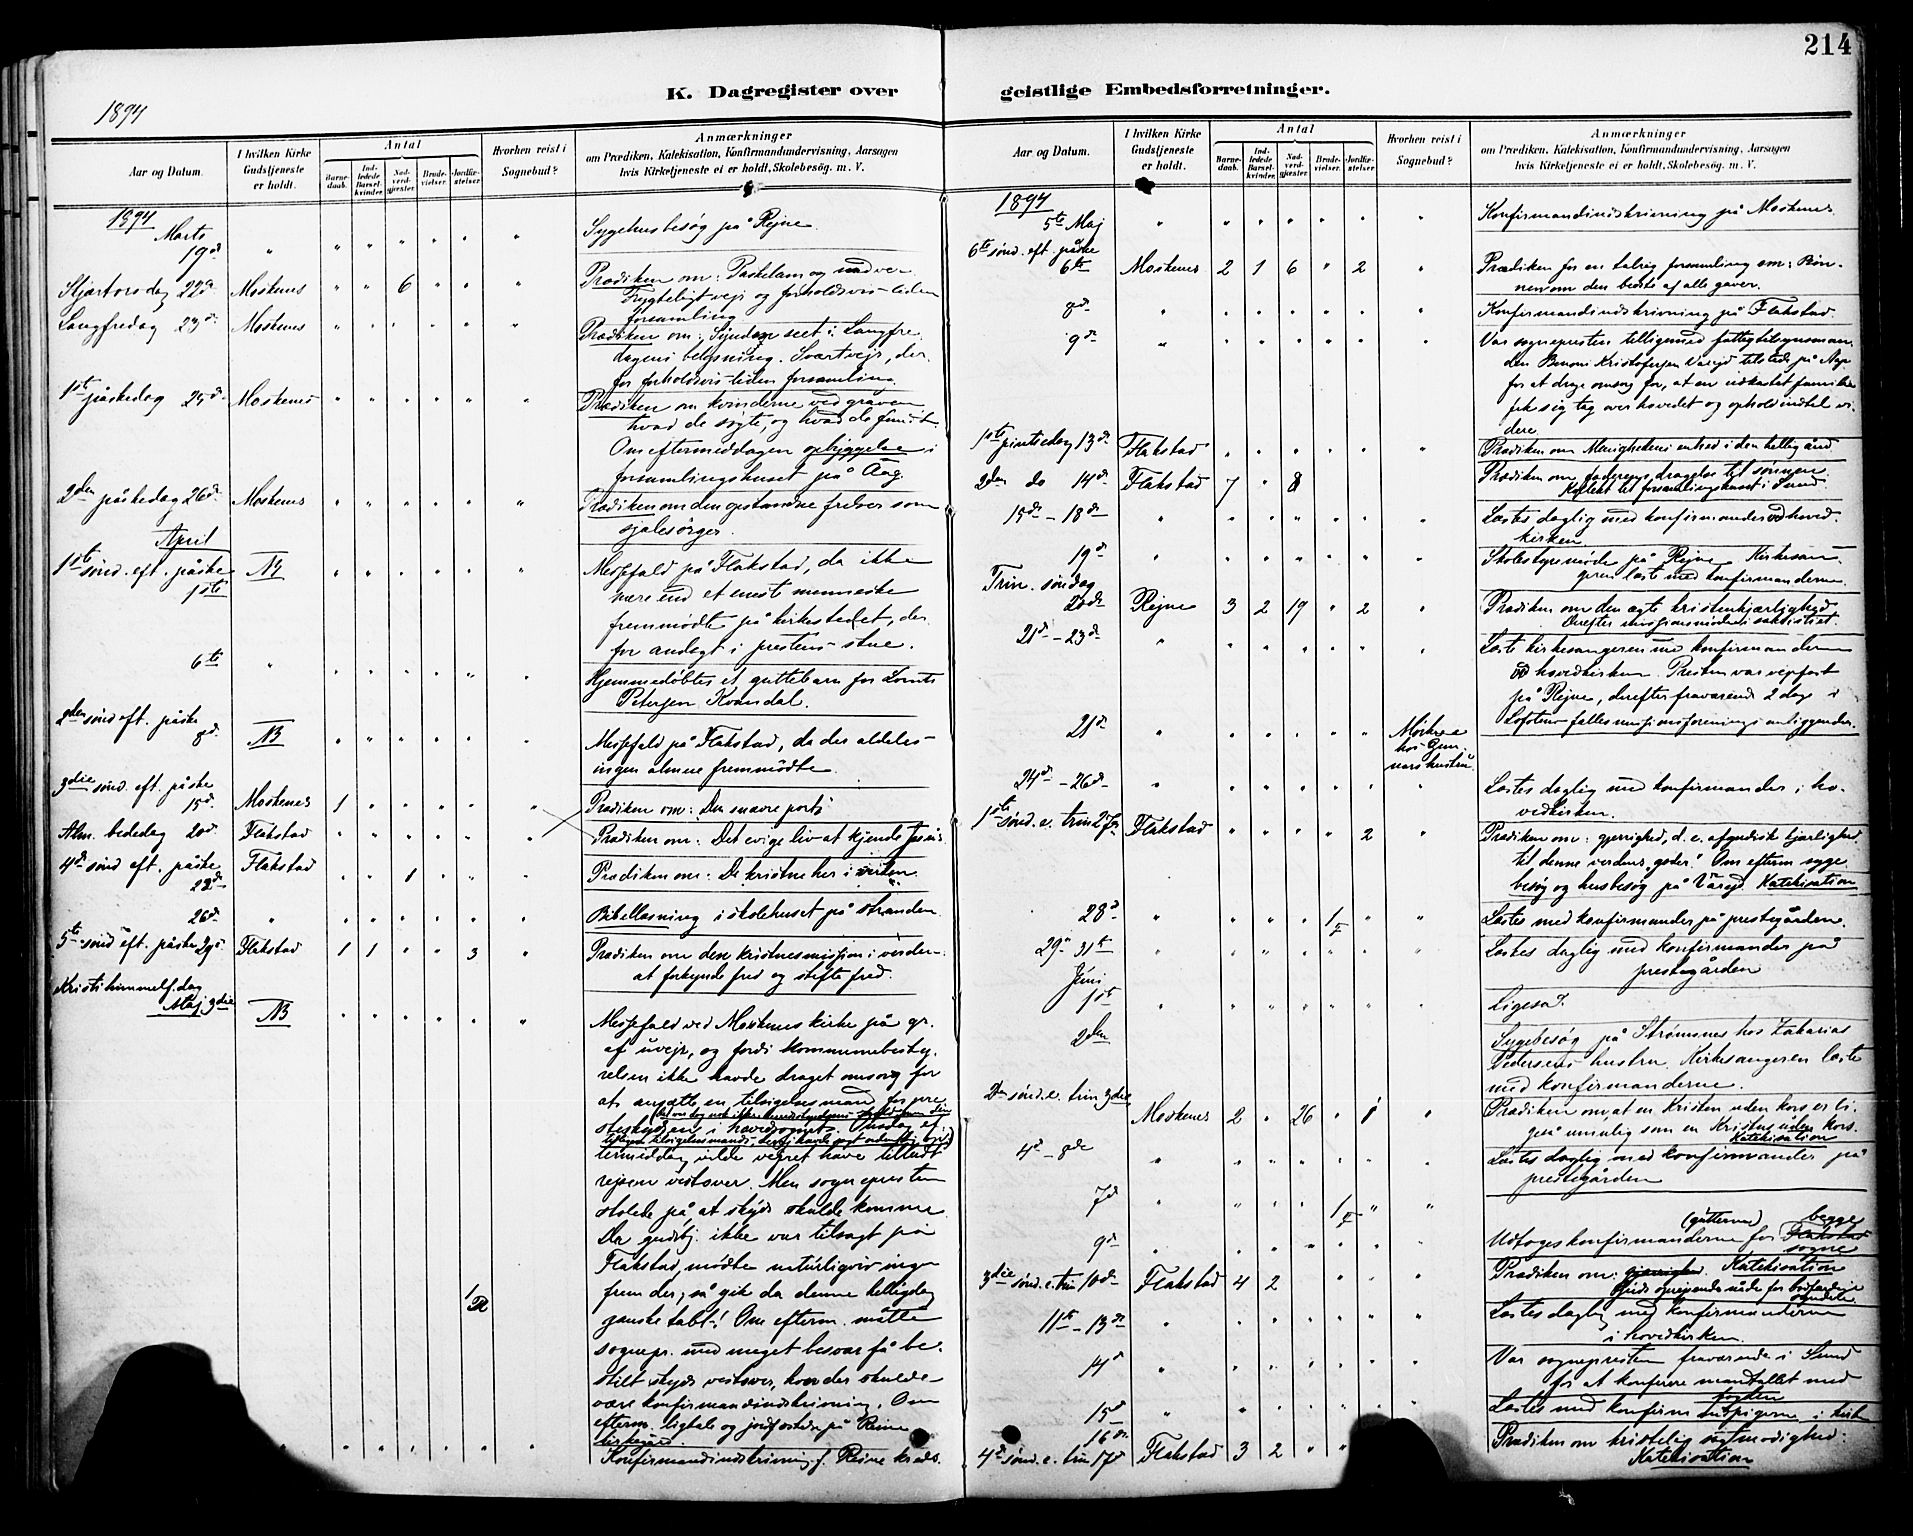 214
K. Dagregister over
geistlige Embedsforretninger.
1894
Aar og Datum.
I hvilken Kirke Gudstjeneste er holdt.
Antal
Barne-daab.
Ind-ledede Barsel-kvinder.
Nad-verd-gjester.
Brude-vielser.
Jordfæ-stelser.
Hvorhen reist i Sognebud?
Anmærkninger
om Prædiken, Katekisation, Konfirmandundervisning, Aarsagen
hvis Kirketjeneste ei er holdt, Skolebesøg. m. V.
1894
Marts
19d
Sygehusbesøg på Rejne.
Skjærtorsdag 22d Moskenes 6 Prædiken om: Påskelam og nadver.
Frygteligt vejr og forholdsvis liden
forsamling
Langfredag 23d Moskenes Prædiken om: Synden seet i Langfre
dagens belysning. Svart vejr, der-
for forholdsvis liden forsamling.
1ste påskedag 25d Moskenes Prædiken om kvinderne ved graven
hvad de søgte, og hvad de fandt.
Om eftermiddagen opbyggelse i
forsamlingshuset på Aag.
2den påskedag 26d Moskenes Prædiken om den opstandne frelser som
sjælesørger.
April
1ste sønd. eft. påske NB Messefald på Flakstad, da ikke
1ste
mere end et eneste menneske
fremmødte på kirkestedet, der-
for andagt i prestens stue.
6te Hjemmedøbtes et guttebarn for Lornts
Petersen Kvandal.
2den sønd eft. påske
8d. NB Messefald på Flakstad, da der aldeles
ingen almue fremmødte.
3die sønd. eft. påske
15d. Moskenes 1 Prædiken om: Den snævre port.
Alm. bededag 20d. Flakstad Prædiken om: Det evige liv at kjende Jesus.
4d sønd eft. påske Flakstad 1 Prædiken om: De kristne her i verden.
22d
26d. Bibellæsning i skolehuset på stranden.
5te sønd eft. påske 29d Flakstad 1 1 3 Prædiken om den kristnes mission i verden:
at forkynde fred og stifte fred.
Kristi himmelf. dag
Maj 3die NB Messefald ved Moskenes kirke på gr.
af uvejr, og fordi kommunebesty-
relsen ikke havde draget omsorg for
at ansætte en tilsigelsesmand for pre
steskydsen i hovedsognet. Onsdag ef-
termiddag vilde vejret have tilladt
rejsen vestover. Men sognepresten
stolede på at skyds skulde komme.
Da gudstj. ikke var tilsagt på
Flakstad, mødte naturligvis ingen
frem der, så gik da denne helligdag
1
R
ganske tabt! Om efterm. måtte
sognepr. med meget besvær få be-
stilt skyds vestover, hvor der skulde
være konfirmandindskrivning. Om
efterm. ligtale og jordfæstelse på Reine
kirkegård.
Konfirmandindskrivning f. Reine kreds.
Aar og Datum.
I hvilken Kirke Gudstjeneste er holdt.
Antal
Barne-daab.
Ind-ledede Barsel-kvinder.
Nad-verd-gjester.
Brude-vielser.
Jordfæ-stelser.
Hvorhen reist i Sognebud?
Anmærkninger
om Prædiken, Katekisation, Konfirmandundervisning, Aarsagen
hvis Kirketjeneste ei er holdt, Skolebesøg. m. V.
1894
5te Maj Konfirmandindskrivning på Moskenes
6te sønd. eft. påske
6te Moskenes 2 1 6 2 Prædiken for en talrig forsamling om: Bøn-
nen om den bedste af alle gaver.
8d Konfirmandindskrivning på Flakstad.
9d Var sognepresten tilligemed fattigtilsynsman-
den Benoni Kristofersen Varejd tilstede på
for at drage omsorg for, at en udkastet familie
fik sig tag over hovedet og ophold indtil vi-
dere
1ste pintsedag 13d Flakstad Prædiken om Menighedens enhed i den hellig ånd
2den do 14d Flakstad 7 8 Prædiken om faderens dragelse til sønnen.
Kollekt til forsamlingshuset i Sund.
15d - 18d Læstes daglig med konfirmander ved hoved-
kirken
19d Skolestyremøde på Rejne. Kirkesan-
geren læste med konfirmanderne.
Trin. søndag
20d Rejne 3 2 19 2 Prædiken om den ægte kristenkjærlighed.
21d - 23d Læste kirkesangeren med konfirmanderne
ved hovedkirken. Presten var vejrfast
på Rejne, derefter fraværende 2 dage i
Lofotens fælles missionsforenings anliggender.
21d
24d - 26d Læstes daglig med konfirmander i ho-
vedkirken.
1ste sønd. e. trin 27d Flakstad 2 Prædiken om: gjerrighed, d. e. afgudisk kjærlighed
til denne verdens goder! Om efterm syge-
besøg og husbesøg på Varejd. Katekisation
28d 1 Læstes med konfirmander på prestegården.
29d 31te Læstes daglig med konfirmander på
prestegården
Juni
1ste Ligeså.
2den Sygebesøg på Strømsnes hos Zakarias
Pedersens hustru. Kirkesangeren læste
med konfirmanderne.
2den sønd. e. trin 3die Moskenes 2 26 1 Prædiken om, at en Kristen uden kors er li-
geså umulig som en Kristus uden kors.
Katekisation
4d - 8de Læstes daglig med konfirmander på
prestegården
7d 1
9d Udtoges konfirmanderne (gutterne) for Flakstad begge
sogne
3die sønd. e. trin 10d Flakstad 4 2 Prædiken om: Katekisation
11te - 13d Læstes daglig med konfirmanderne
i hovedkirken.
14d Var sognepresten fraværende i Sund
for at konferere mandtallet med
fogden
15d Læstes med konfirm
16de
4d sønd. e. trin 17d Flakstad 3 2 Prædiken om kristelig sagtmodighed
Katekisation